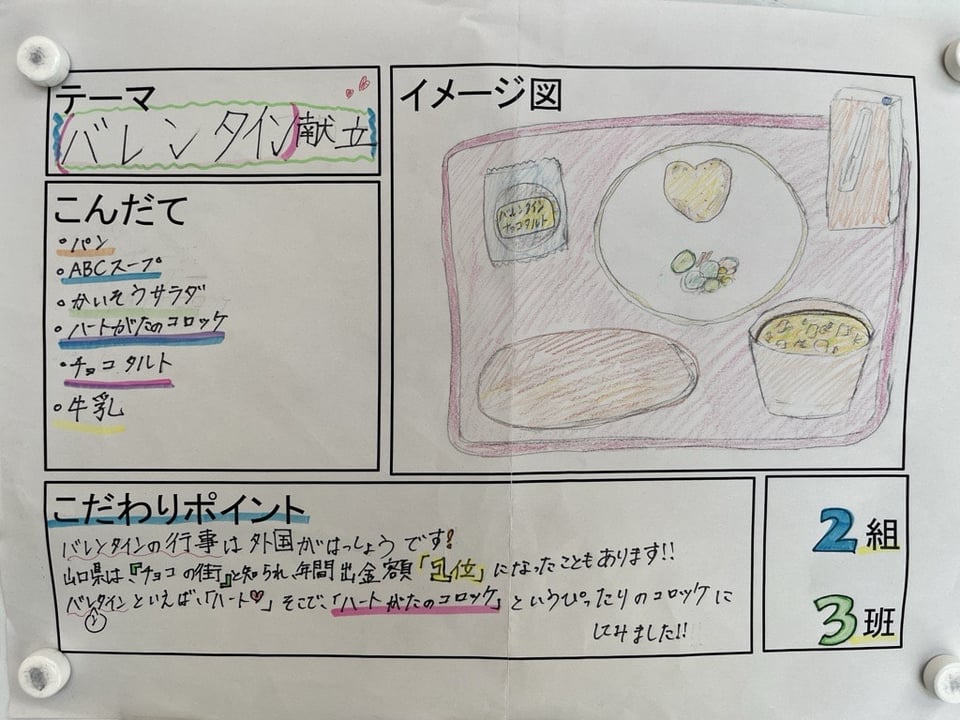 テーマ
バレンタイン献立
こんだて
・パン
・ABCスープ
・かいそうサラダ
・ハートがたのコロッケ
・チョコタルト
・牛乳
イメージ図
バレンタイン
チョコタルト
こだわりポイント
バレンタインの行事は外国がはっしょうです!
山口県は、『チョコの街』と知られ、年間出金額「1位」になったこともあります!!
バレンタインといえば、「ハート♥」そこで、「ハートがたのコロッケ」というぴったりのコロッケに
してみました!!
2組
3班